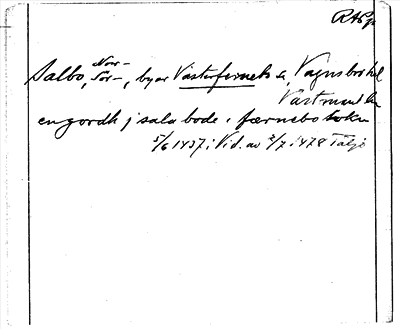 RAp
Salbo, Nor-
Sör-, byar Västerfärnebo sn, Vagnsbro hd
Västmanl. l.
en gordh j sala bode i færnebo sokn
5/6 1437 i Vid. av 2/7 1478 Tälje